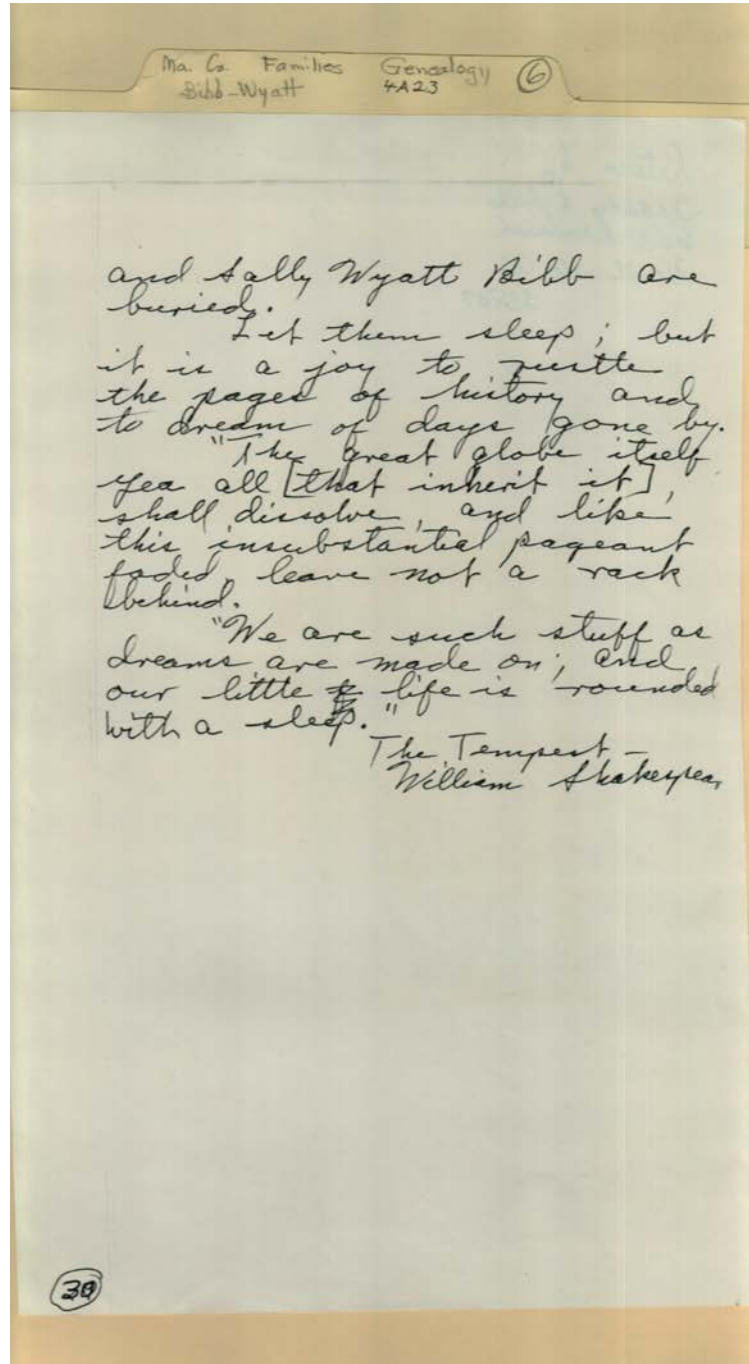 Ma. Co. Families Genealogy 6
Bibb-Wyatt 4A23
and Sally Wyatt Bibb are
buried.
Let them sleep; but
it is a joy to rustle
the pages of history and
to dream of days gone by.
"The great globe itself
Yea all [that inherit it],
shall dissolve, and like
this insubstantial pageant
faded, leave not a rack
behind.
"We are such stuff as
dreams are made on; and
our little life is rounded
with a sleep."
The Tempest -
William Shakespear
30